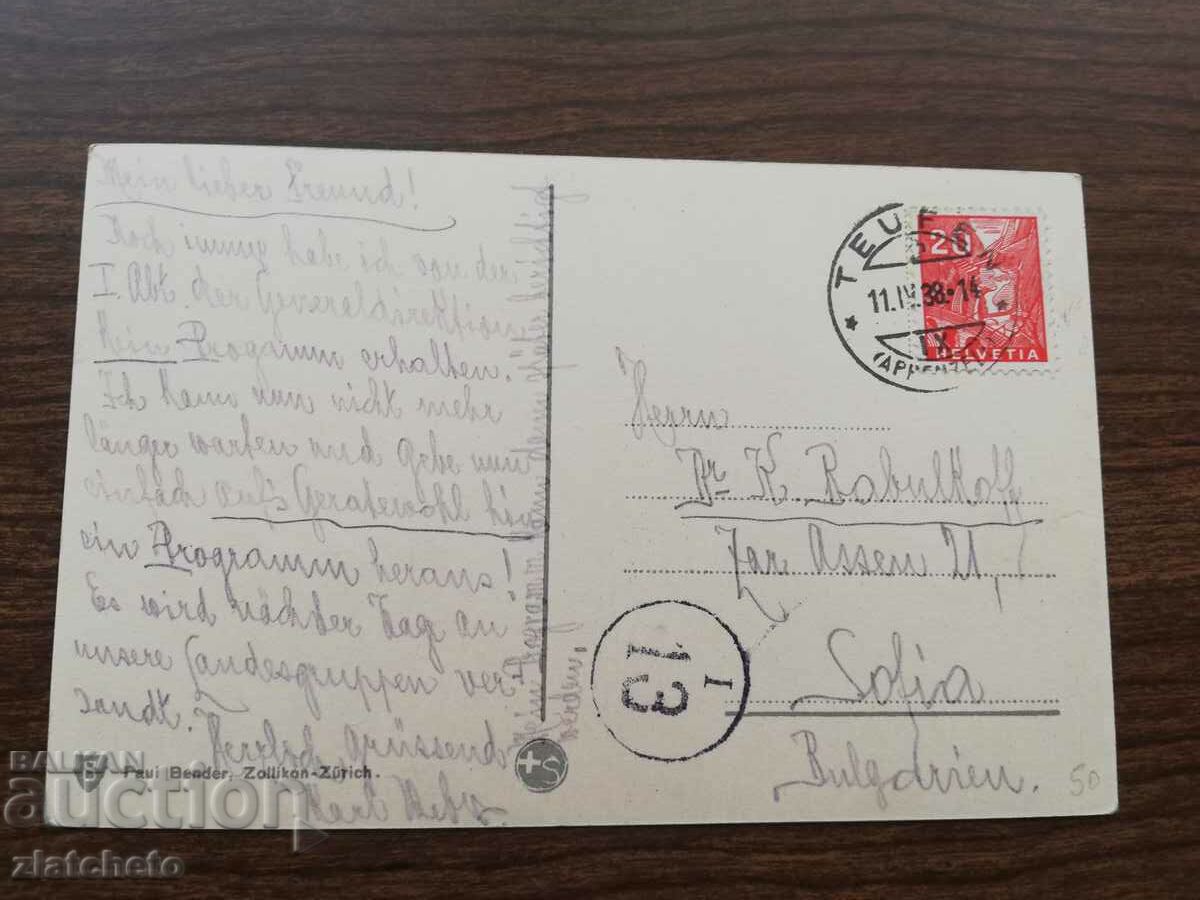 Mein lieber Freund!
Noch immer habe ich von der
I. Abt. der Generaldirektion
kein Programm erhalten.
Ich kann nun nicht mehr
länger warten und gebe nun
einfach auf's Geratewohl hin
ein Programm heraus!
Es wird nächster Tag an
unsere Landesgruppen ver
sandt.
Herzlich grüssend
Karl
Mein Programm kann dann später berichtig
werden.
Paul Bender, Zollikon-Zürich.
TEUFEN
11.IV.38.-14
IX
(APPENZELL)
20
HELVETIA
Herrn
Dr. K. Rabulkoff
Zar Assen 21,
Sofia
Bulgarien.
I
13
50
BALKAN
auction
zlatcheto